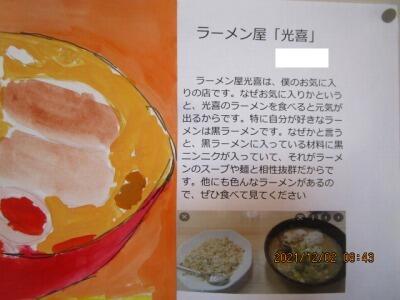 ラーメン屋「光喜」
ラーメン屋光喜は、僕のお気に入
りの店です。なぜお気に入りかという
と、光喜のラーメンを食べると元気が
出るからです。特に自分が好きなラー
メンは黒ラーメンです。なぜかと言う
と、黒ラーメンに入っている材料に黒
ニンニクが入っていて、それがラーメ
ンのスープや麺と相性抜群だからで
す。他にも色んなラーメンがあるの
で、ぜひ食べて見てください
2021/12/02 08:43